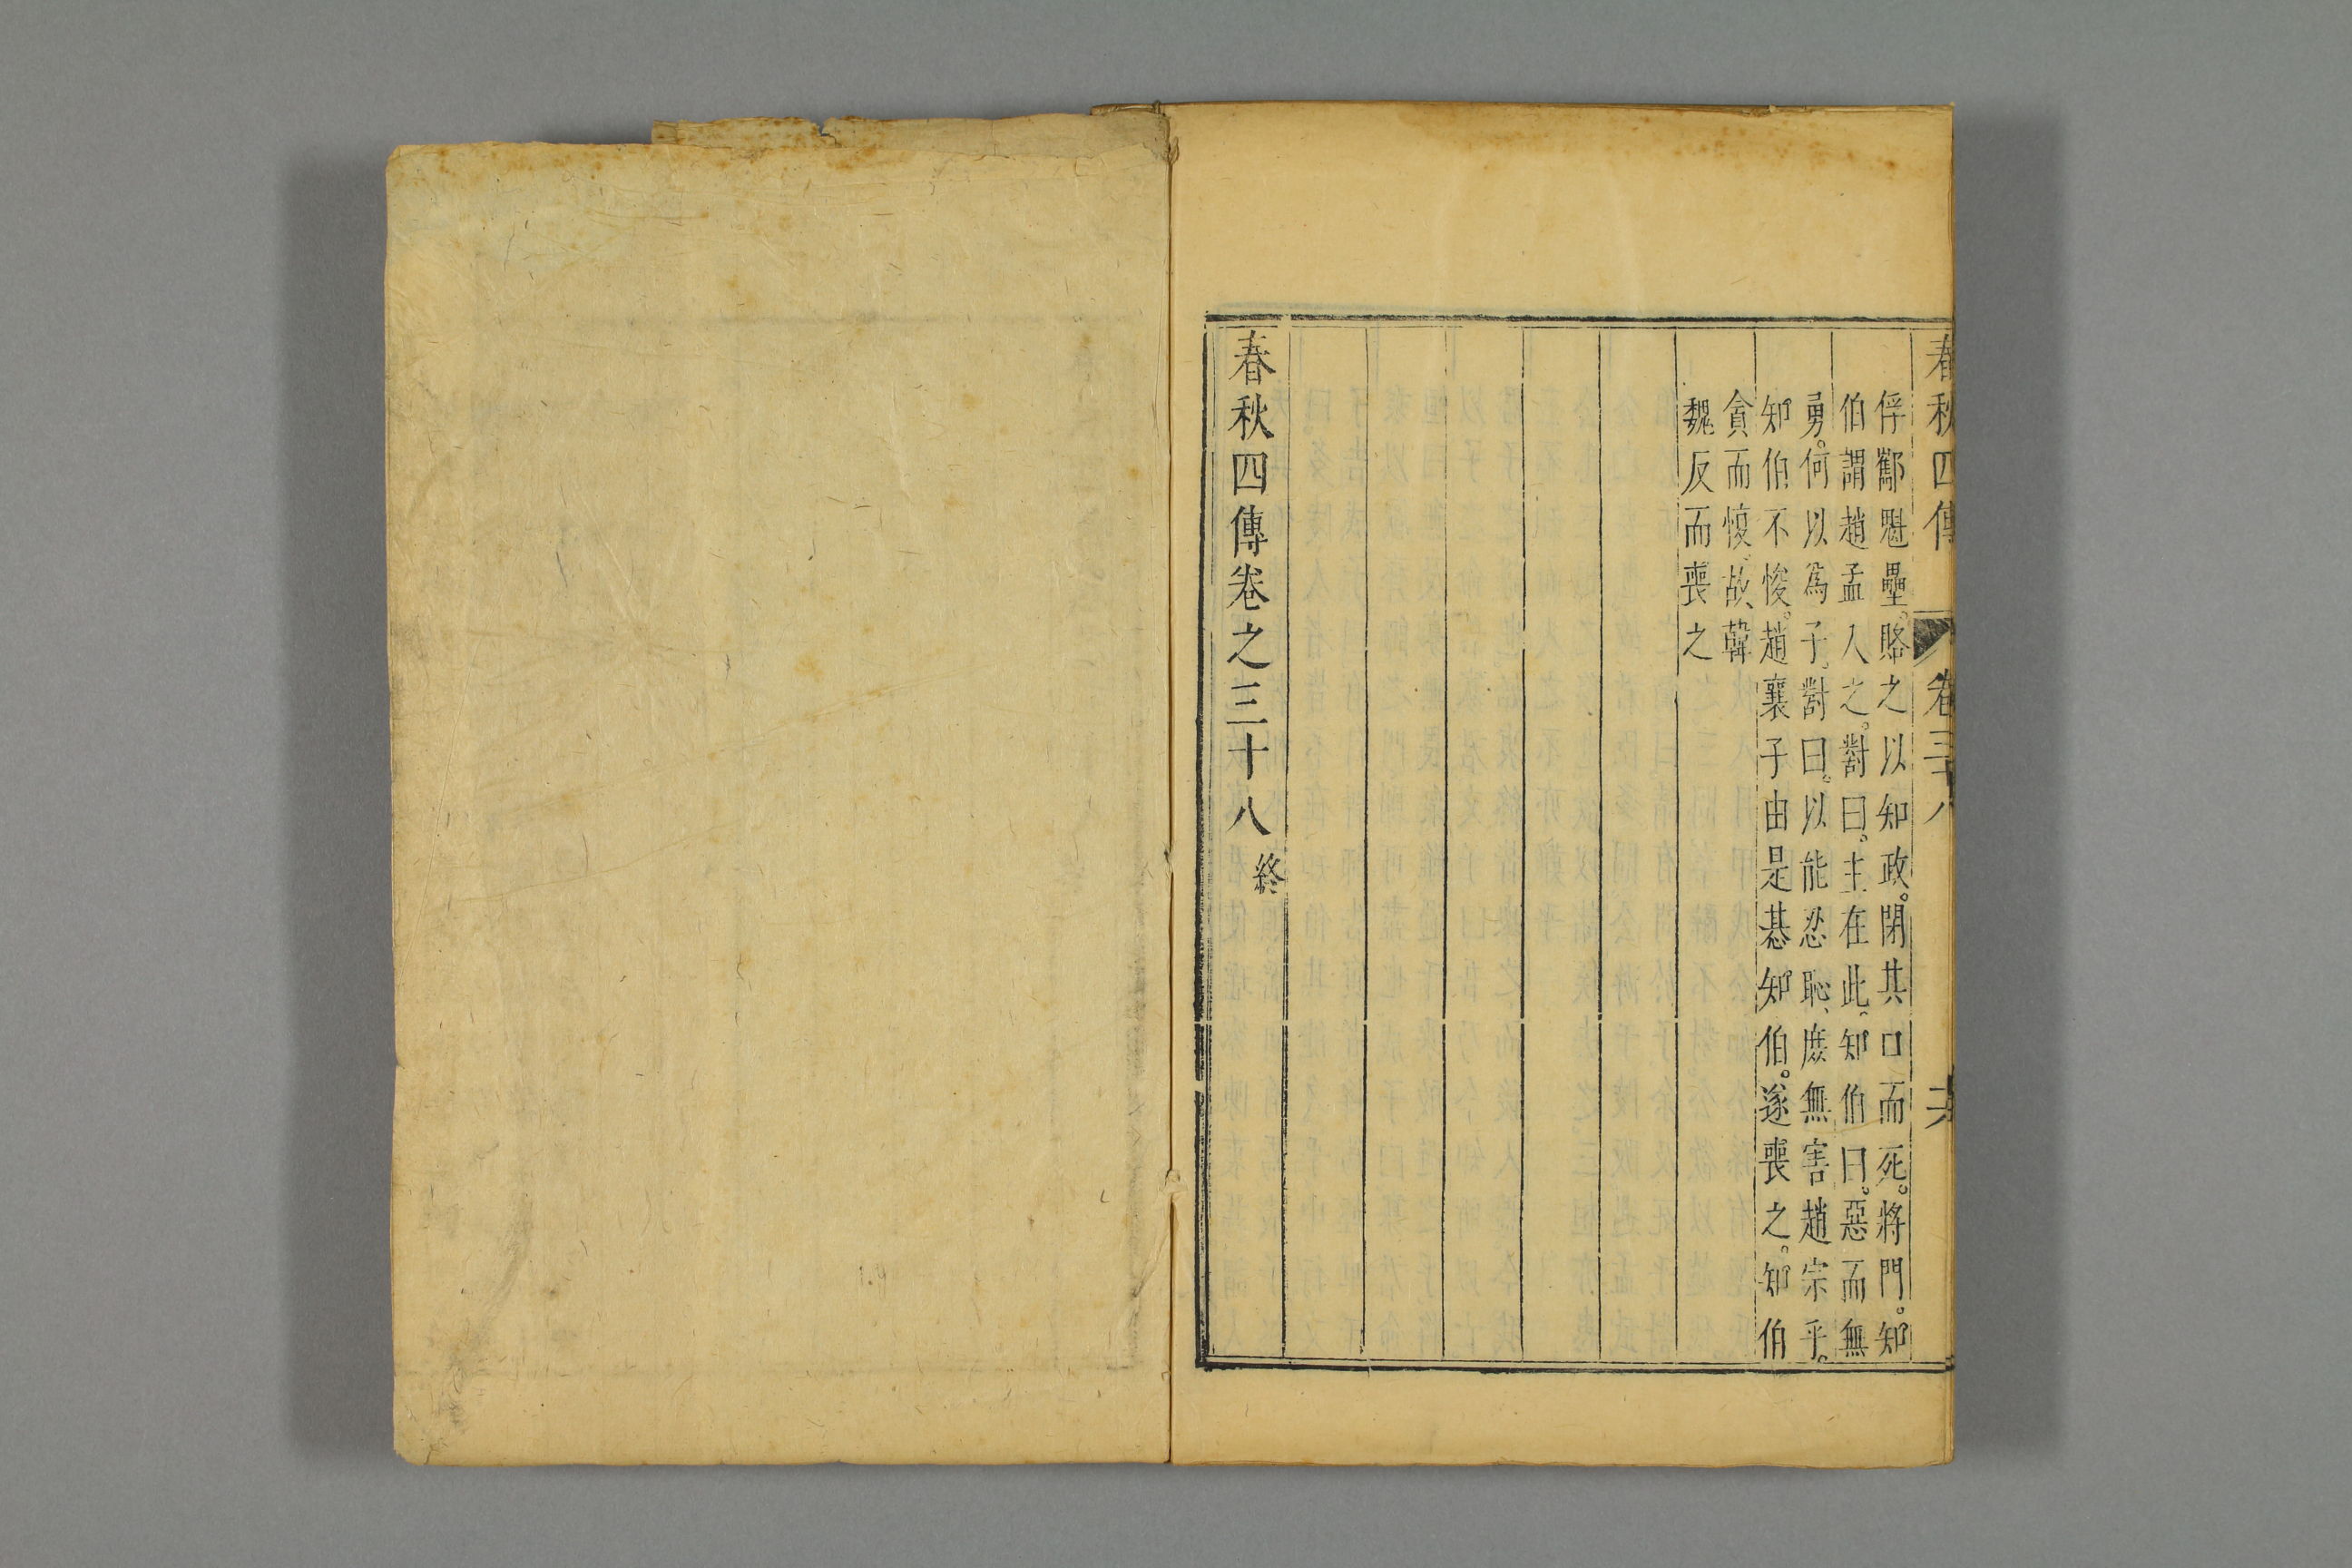 春秋四傳 卷三十八 六
俘酅魁壘。賂之以知政。閉其口而死。將門。知
伯謂趙孟入之。對曰。主在此。知伯曰。惡而無
勇。何以爲子。對曰。以能忍恥、庶無害趙宗乎。
知伯不悛。趙襄子由是惎知伯。遂喪之。知伯
貪而愎、故、韓
魏反而喪之
春秋四傳卷之三十八 終